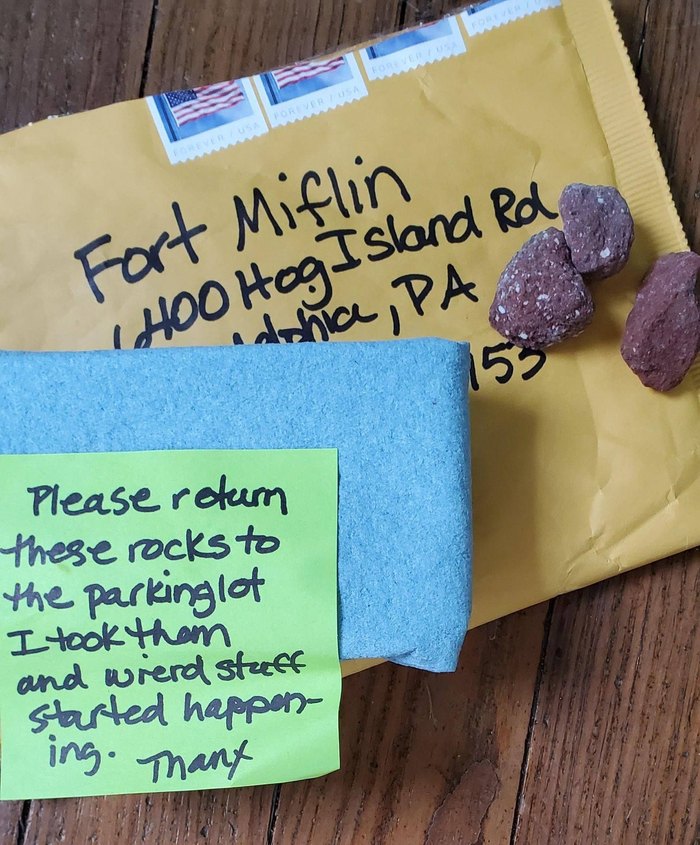 FOREVER / USA
FOREVER / USA
FOREVER / USA
FOREVER / USA
Fort Miflin
6400 Hog Island Rd
, PA
Please return
these rocks to
the parkinglot
I took them
and wierd stuff
started happen-
ing. Thanx